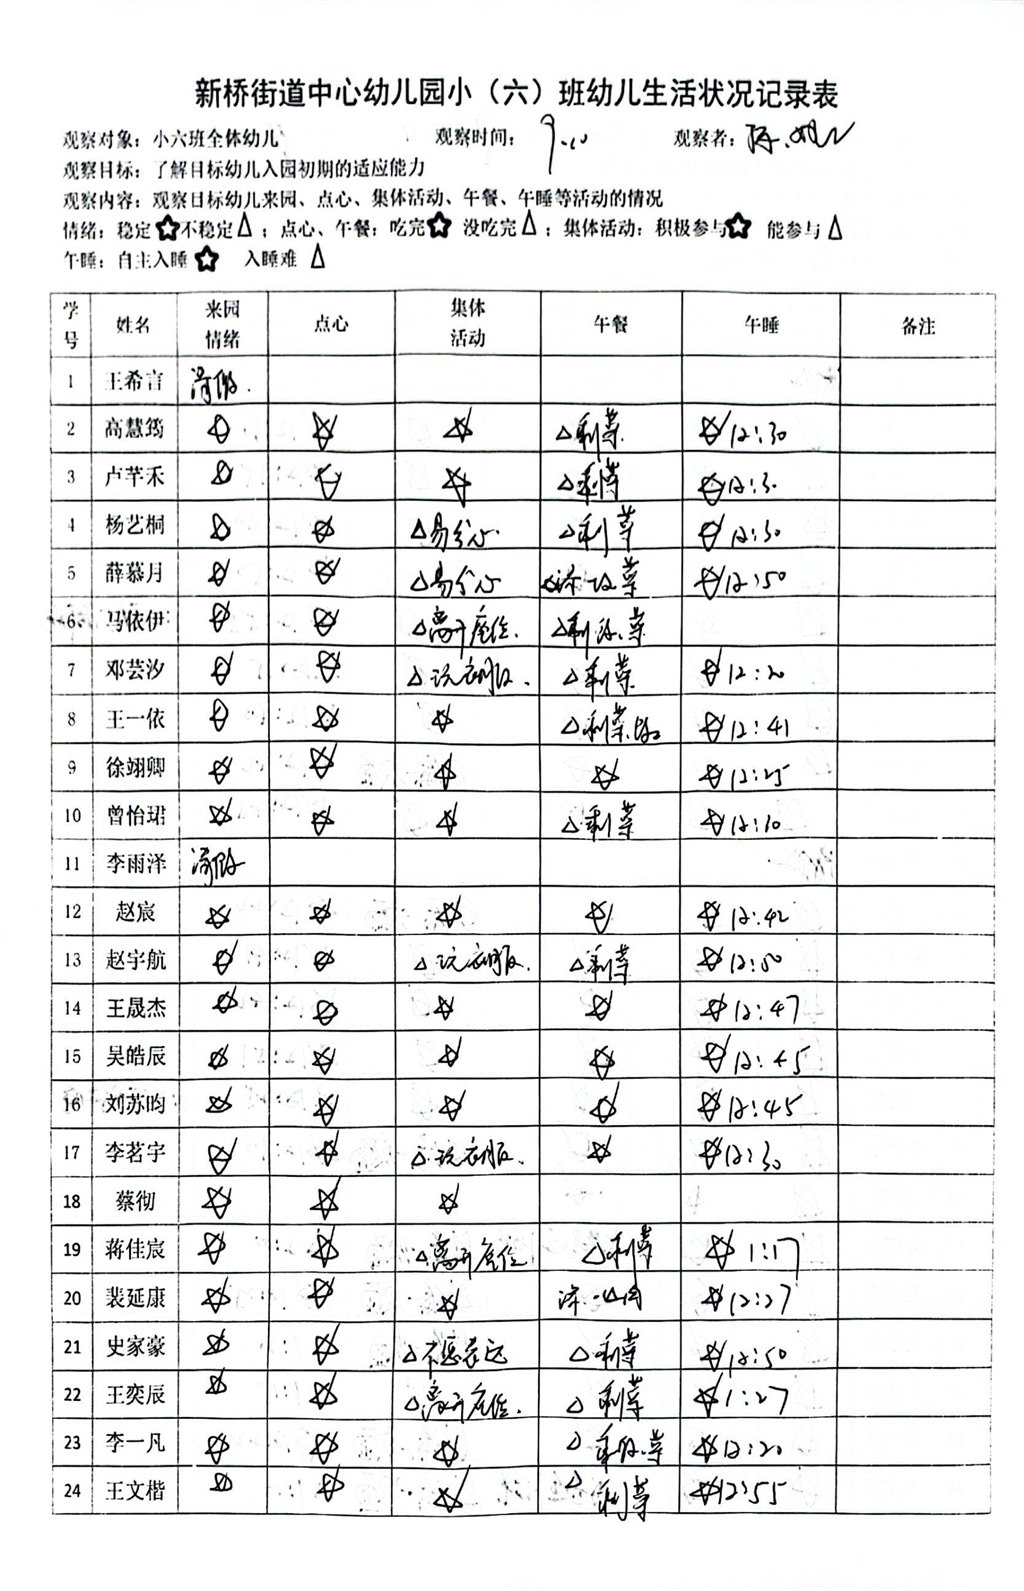 新桥街道中心幼儿园小（六）班幼儿生活状况记录表
观察对象：小六班全体幼儿 观察时间：9.10 观察者：
观察目标：了解目标幼儿入园初期的适应能力
观察内容：观察目标幼儿来园、点心、集体活动、午餐、午睡等活动的情况
情绪：稳定☆不稳定△；点心、午餐：吃完☆ 没吃完△；集体活动：积极参与☆ 能参与△
午睡：自主入睡☆ 入睡难△
学号 姓名 来园情绪 点心 集体活动 午餐 午睡 备注
1 王希言 请假.
2 高慧筠 ☆ ☆ ☆ △剩菜 ☆12:30
3 卢芊禾 ☆ ☆ ☆ △剩菜 ☆12:30
4 杨艺桐 ☆ ☆ △易分心 △剩菜 ☆12:30
5 薛慕月 ☆ ☆ △易分心 菜 ☆12:50
6 马依伊 ☆ ☆ △离开座位. △剩饭.菜
7 邓芸汐 ☆ ☆ △玩衣服. △剩菜 ☆12:20
8 王一依 ☆ ☆ ☆ △剩菜.饭 ☆12:41
9 徐翊卿 ☆ ☆ ☆ ☆ ☆12:25
10 曾怡珺 ☆ ☆ ☆ △剩菜 ☆12:10
11 李雨泽 请假
12 赵宸 ☆ ☆ ☆ ☆ ☆12:42
13 赵宇航 ☆ ☆ △玩衣服. △剩菜 ☆12:50
14 王晟杰 ☆ ☆ ☆ ☆ ☆12:47
15 吴皓辰 ☆ ☆ ☆ ☆ ☆12:45
16 刘苏昀 ☆ ☆ ☆ ☆ ☆12:45
17 李茗宇 ☆ ☆ △玩衣服. ☆ ☆12:30
18 蔡彻 ☆ ☆ ☆
19 蒋佳宸 ☆ ☆ △离开座位 △剩菜 ☆1:17
20 裴延康 ☆ ☆ ☆ ☆12:27
21 史家豪 ☆ ☆ △不愿表达 △剩菜 ☆12:50
22 王奕辰 ☆ ☆ △离开座位. △剩菜 ☆1:27
23 李一凡 ☆ ☆ ☆ △剩饭.菜 ☆12:20
24 王文楷 ☆ ☆ ☆ △剩菜 ☆12:55